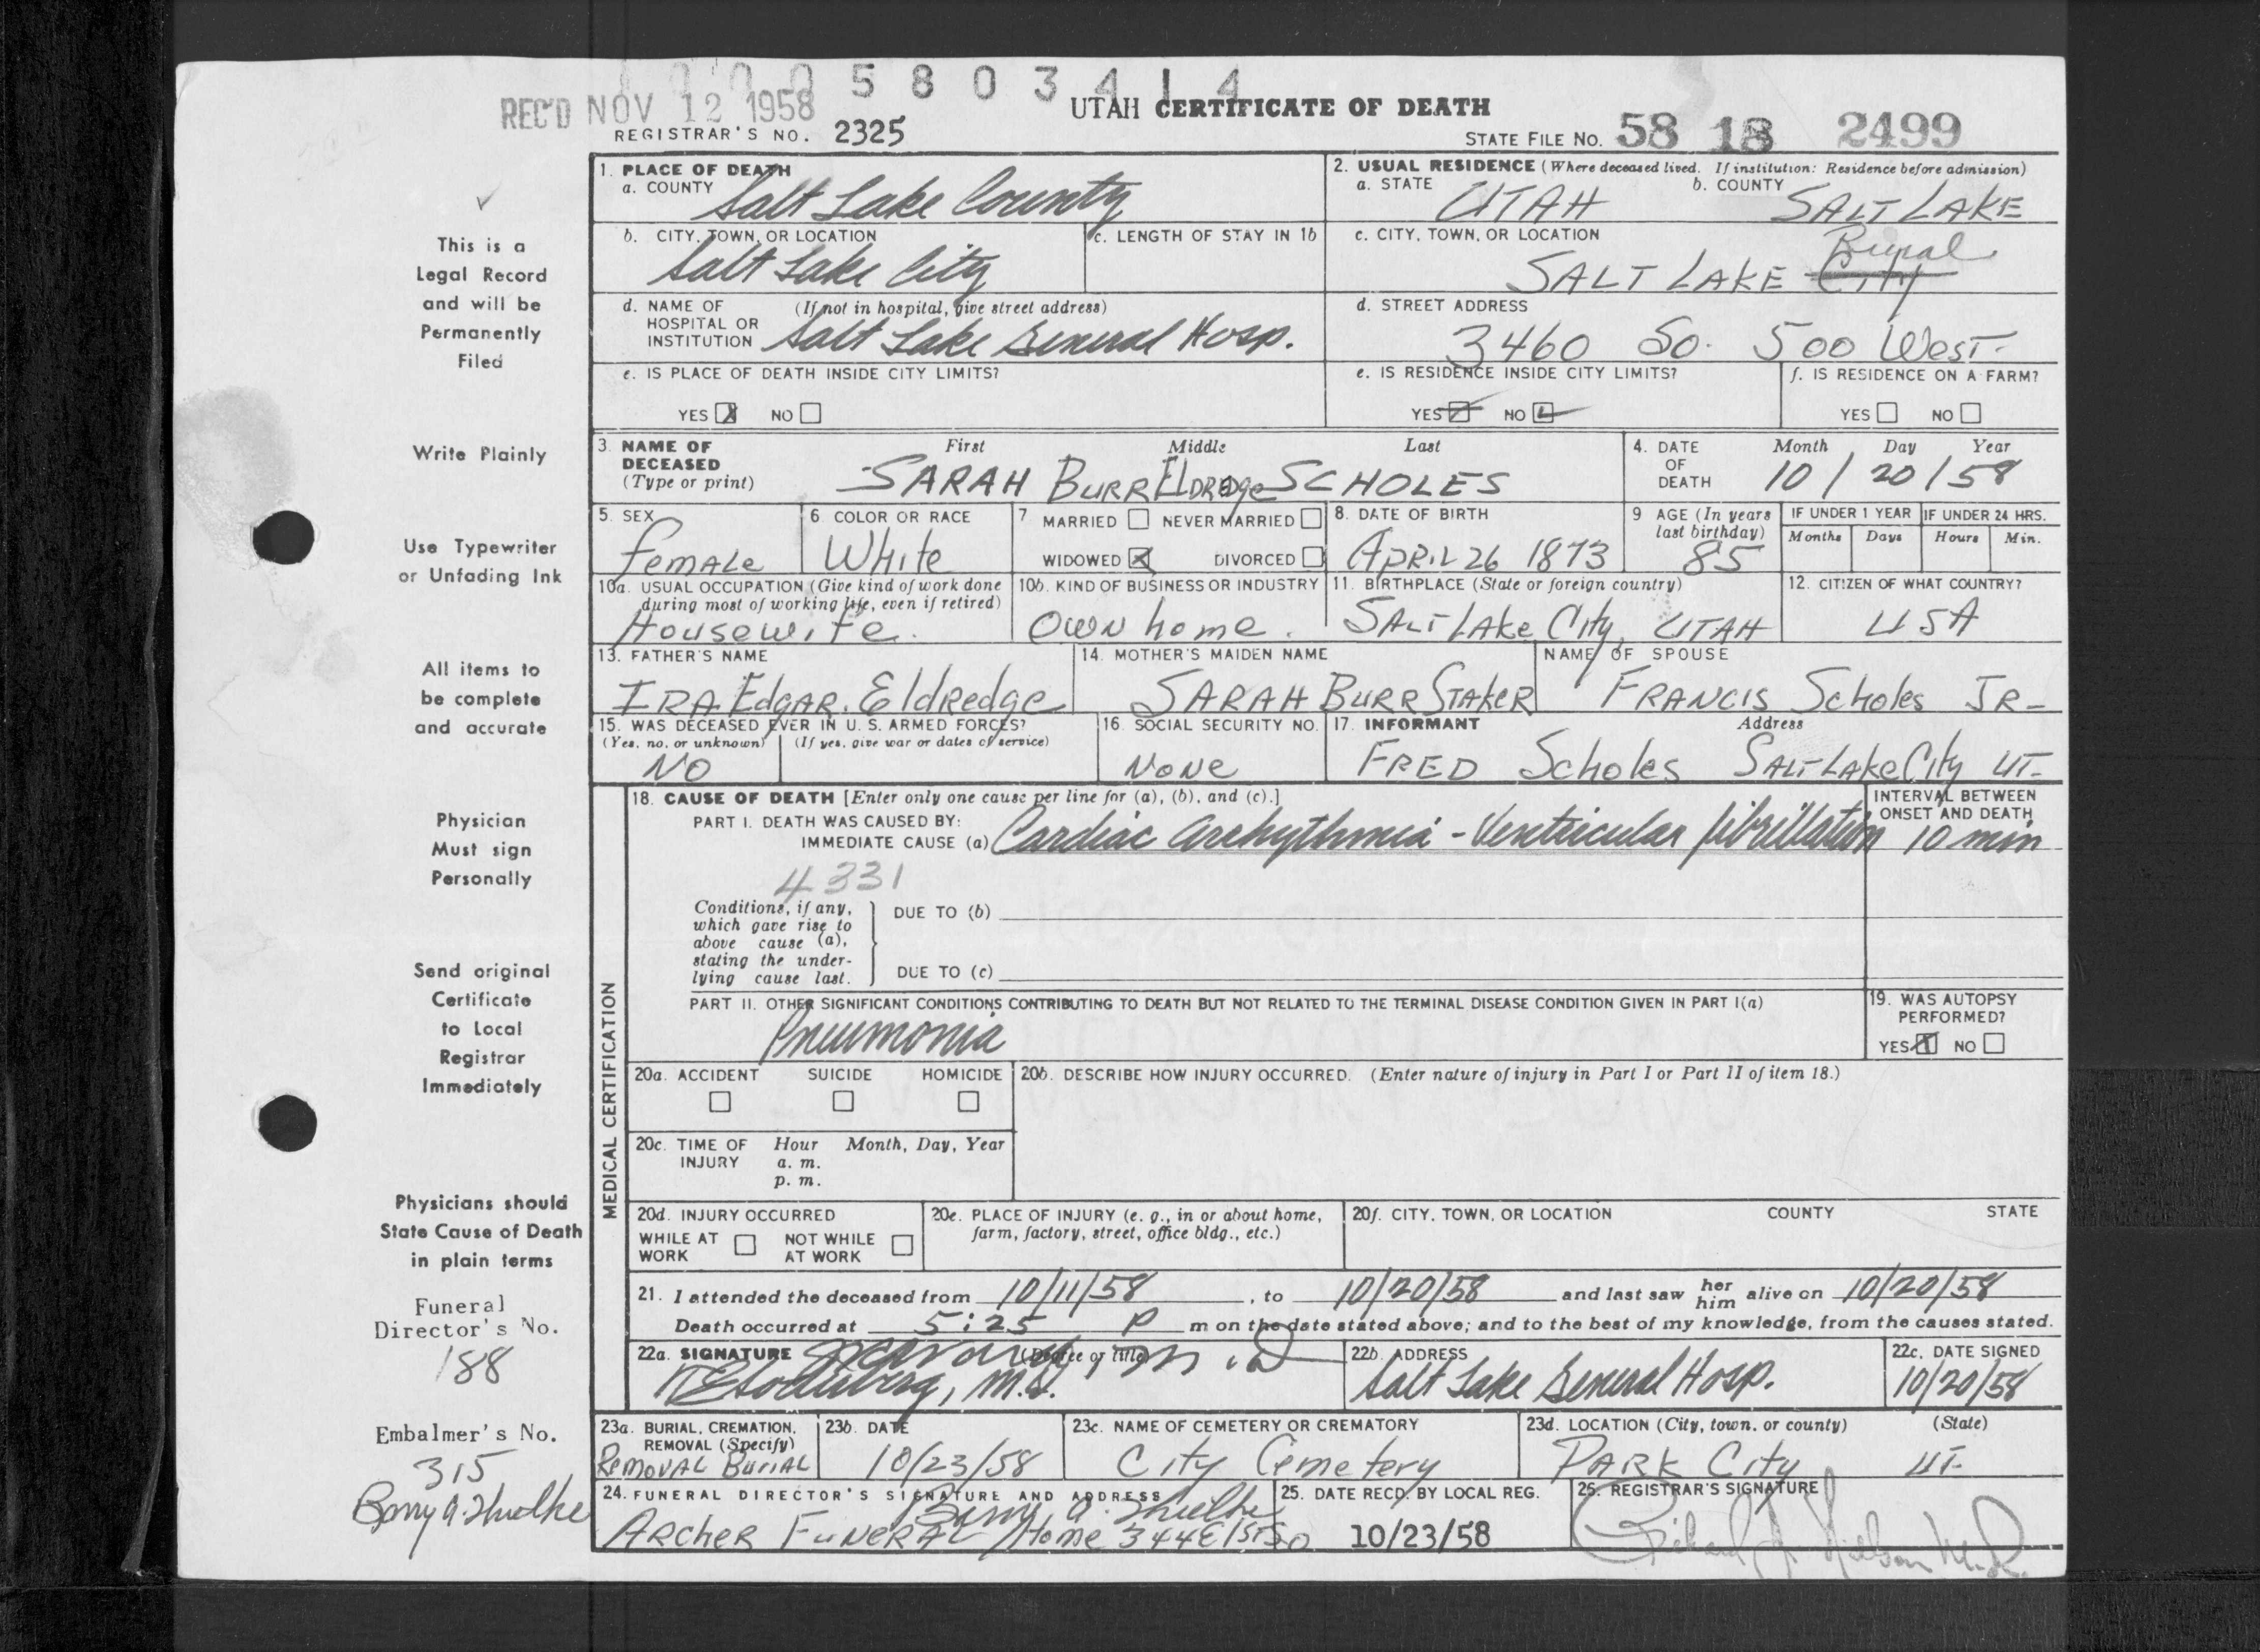 1 0 0 5 8 0 3 4 1 4
REC'D NOV 12 1958
UTAH CERTIFICATE OF DEATH
REGISTRAR'S NO. 2325
STATE FILE NO. 58 18 2499
This is a
Legal Record
and will be
Permanently
Filed
Write Plainly
Use Typewriter
or Unfading Ink
All items to
be complete
and accurate
Physician
Must sign
Personally
Send original
Certificate
to Local
Registrar
Immediately
Physicians should
State Cause of Death
in plain terms
Funeral
Director's No.
188
Embalmer's No.
315
1. PLACE OF DEATH
a. COUNTY Salt Lake County
2. USUAL RESIDENCE (Where deceased lived. If institution: Residence before admission)
a. STATE UTAH b. COUNTY SALT LAKE
b. CITY, TOWN, OR LOCATION Salt Lake City
c. LENGTH OF STAY IN 1b
c. CITY, TOWN, OR LOCATION SALT LAKE City Rural
d. NAME OF HOSPITAL OR INSTITUTION (If not in hospital, give street address) Salt Lake General Hosp.
d. STREET ADDRESS 3460 So. 500 West.
e. IS PLACE OF DEATH INSIDE CITY LIMITS?
YES X NO
e. IS RESIDENCE INSIDE CITY LIMITS?
YES NO
f. IS RESIDENCE ON A FARM?
YES NO
3. NAME OF DECEASED (Type or print)
First Middle Last
SARAH BURR ELDREDGE SCHOLES
4. DATE OF DEATH Month Day Year
10/20/58
5. SEX Female
6. COLOR OR RACE White
7. MARRIED NEVER MARRIED
WIDOWED X DIVORCED
8. DATE OF BIRTH APRIL 26 1873
9. AGE (In years last birthday) 85
IF UNDER 1 YEAR Months Days
IF UNDER 24 HRS. Hours Min.
10a. USUAL OCCUPATION (Give kind of work done during most of working life, even if retired)
Housewife.
10b. KIND OF BUSINESS OR INDUSTRY
OWN home.
11. BIRTHPLACE (State or foreign country)
SALT LAKE City, UTAH
12. CITIZEN OF WHAT COUNTRY?
USA
13. FATHER'S NAME
IRA Edgar. Eldredge
14. MOTHER'S MAIDEN NAME
SARAH BURR STAKER
NAME OF SPOUSE
FRANCIS Scholes JR-
15. WAS DECEASED EVER IN U. S. ARMED FORCES?
(Yes, no, or unknown) (If yes, give war or dates of service)
NO
16. SOCIAL SECURITY NO.
NONE
17. INFORMANT Address
FRED Scholes SALT LAKE City UT-
MEDICAL CERTIFICATION
18. CAUSE OF DEATH [Enter only one cause per line for (a), (b), and (c).]
INTERVAL BETWEEN ONSET AND DEATH
PART I. DEATH WAS CAUSED BY:
IMMEDIATE CAUSE (a) Cardiac arrhythmia - Ventricular fibrillation 10 min
4331
Conditions, if any, which gave rise to above cause (a), stating the underlying cause last.
DUE TO (b)
DUE TO (c)
PART II. OTHER SIGNIFICANT CONDITIONS CONTRIBUTING TO DEATH BUT NOT RELATED TO THE TERMINAL DISEASE CONDITION GIVEN IN PART I(a)
Pneumonia
19. WAS AUTOPSY PERFORMED?
YES X NO
20a. ACCIDENT SUICIDE HOMICIDE
20b. DESCRIBE HOW INJURY OCCURRED. (Enter nature of injury in Part I or Part II of item 18.)
20c. TIME OF INJURY Hour Month, Day, Year
a. m.
p. m.
20d. INJURY OCCURRED
WHILE AT WORK NOT WHILE AT WORK
20e. PLACE OF INJURY (e. g., in or about home, farm, factory, street, office bldg., etc.)
20f. CITY, TOWN, OR LOCATION COUNTY STATE
21. I attended the deceased from 10/11/58, to 10/20/58 and last saw her him alive on 10/20/58
Death occurred at 5:25 P m on the date stated above; and to the best of my knowledge, from the causes stated.
22a. SIGNATURE (Degree or title) M.D.
22b. ADDRESS
Salt Lake General Hosp.
22c. DATE SIGNED
10/20/58
23a. BURIAL, CREMATION, REMOVAL (Specify)
Removal Burial
23b. DATE
10/23/58
23c. NAME OF CEMETERY OR CREMATORY
City Cemetery
23d. LOCATION (City, town, or county) (State)
PARK City UT-
24. FUNERAL DIRECTOR'S SIGNATURE AND ADDRESS
ARCHER FUNERAL Home 344 E 1st So
25. DATE RECD. BY LOCAL REG.
10/23/58
26. REGISTRAR'S SIGNATURE